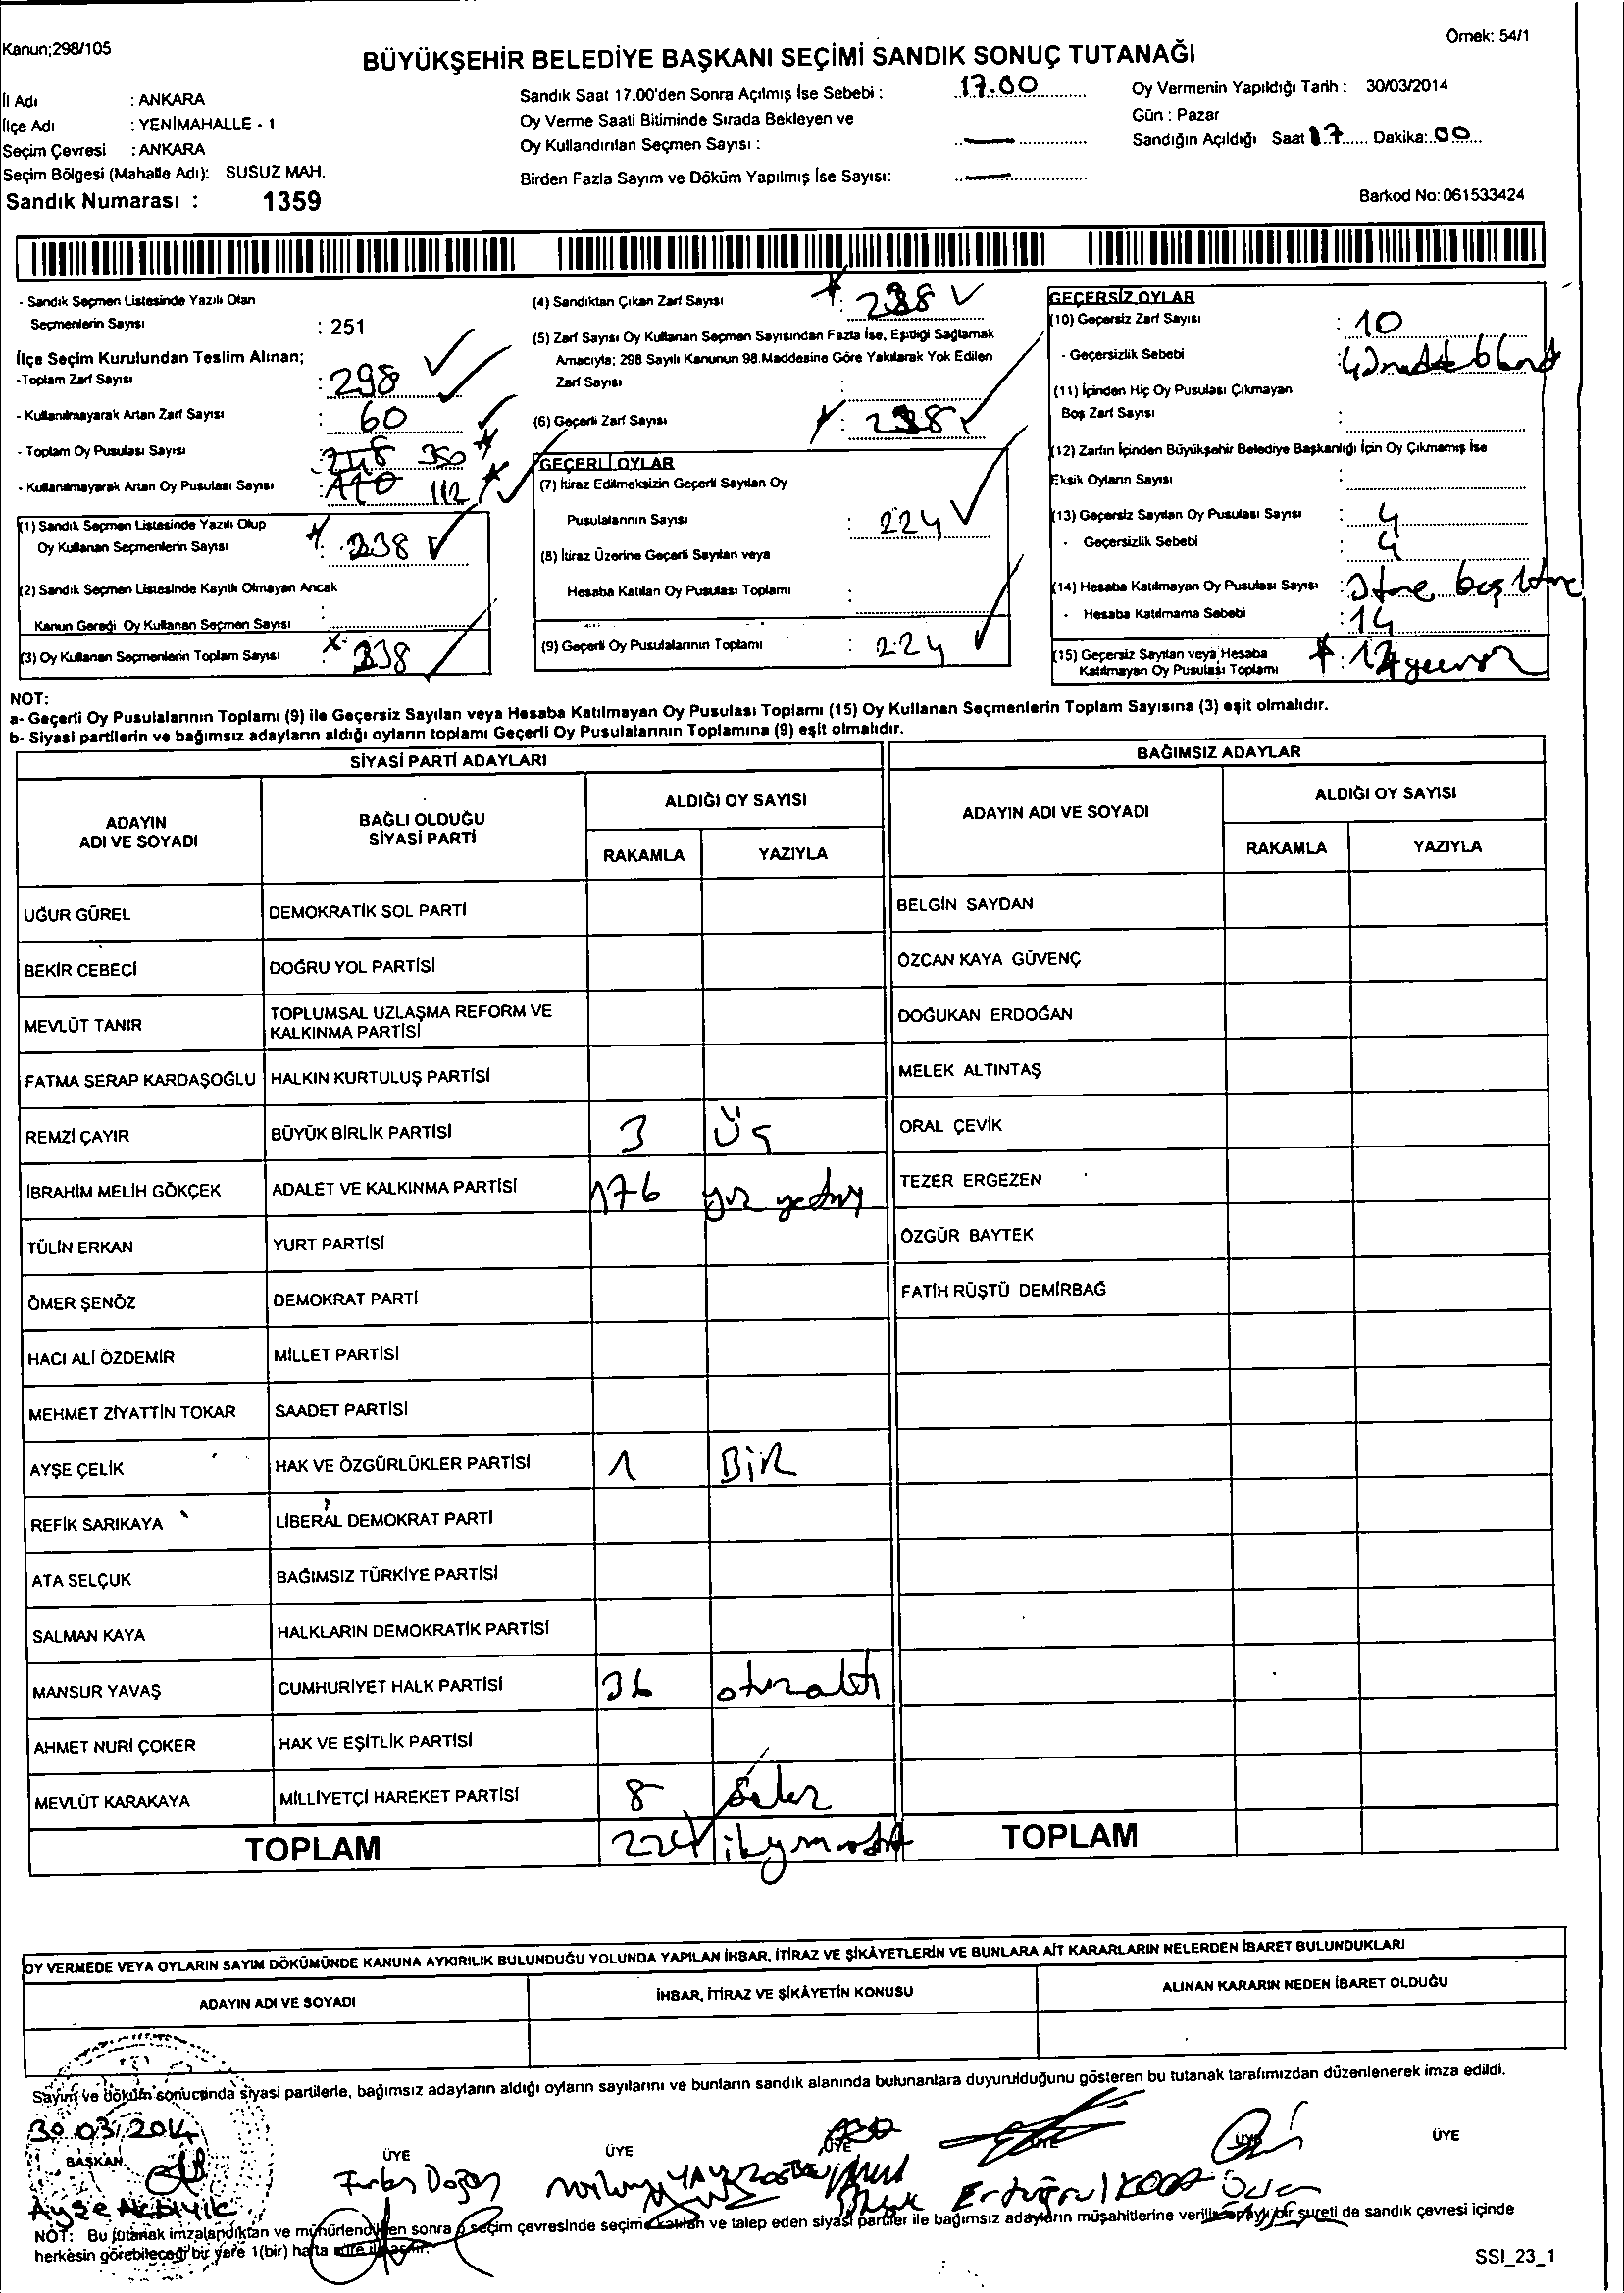 Kanun;298/105
Örnek: 54/1
BÜYÜKŞEHİR BELEDİYE BAŞKANI SEÇİMİ SANDIK SONUÇ TUTANAĞI
İl Adı : ANKARA
İlçe Adı : YENİMAHALLE - 1
Seçim Çevresi : ANKARA
Seçim Bölgesi (Mahalle Adı): SUSUZ MAH.
Sandık Numarası : 1359
Sandık Saat 17.00'den Sonra Açılmış İse Sebebi : 17.00
Oy Verme Saati Bitiminde Sırada Bekleyen ve
Oy Kullandırılan Seçmen Sayısı : —
Birden Fazla Sayım ve Döküm Yapılmış İse Sayısı: —
Oy Vermenin Yapıldığı Tarih : 30/03/2014
Gün : Pazar
Sandığın Açıldığı Saat 17 Dakika: 00
Barkod No: 061533424
- Sandık Seçmen Listesinde Yazılı Olan
Seçmenlerin Sayısı : 251
İlçe Seçim Kurulundan Teslim Alınan;
-Toplam Zarf Sayısı : 298
- Kullanılmayarak Artan Zarf Sayısı : 60
- Toplam Oy Pusulası Sayısı : 350
- Kullanılmayarak Artan Oy Pusulası Sayısı : 112
(1) Sandık Seçmen Listesinde Yazılı Olup
Oy Kullanan Seçmenlerin Sayısı : 238
(2) Sandık Seçmen Listesinde Kayıtlı Olmayan Ancak
Kanun Gereği Oy Kullanan Seçmen Sayısı :
(3) Oy Kullanan Seçmenlerin Toplam Sayısı : 238
(4) Sandıktan Çıkan Zarf Sayısı : 238
(5) Zarf Sayısı Oy Kullanan Seçmen Sayısından Fazla İse, Eşitliği Sağlamak
Amacıyla; 298 Sayılı Kanunun 98.Maddesine Göre Yakılarak Yok Edilen
Zarf Sayısı :
(6) Geçerli Zarf Sayısı : 238
GEÇERLİ OYLAR
(7) İtiraz Edilmeksizin Geçerli Sayılan Oy
Pusulalarının Sayısı : 224
(8) İtiraz Üzerine Geçerli Sayılan veya
Hesaba Katılan Oy Pusulası Toplamı :
(9) Geçerli Oy Pusulalarının Toplamı : 224
GEÇERSİZ OYLAR
(10) Geçersiz Zarf Sayısı : 10
- Geçersizlik Sebebi :
(11) İçinden Hiç Oy Pusulası Çıkmayan
Boş Zarf Sayısı :
(12) Zarfın İçinden Büyükşehir Belediye Başkanlığı İçin Oy Çıkmamış İse
Eksik Oyların Sayısı :
(13) Geçersiz Sayılan Oy Pusulası Sayısı : 4
- Geçersizlik Sebebi : 4
(14) Hesaba Katılmayan Oy Pusulası Sayısı :
- Hesaba Katılmama Sebebi : 14
(15) Geçersiz Sayılan veya Hesaba
Katılmayan Oy Pusulası Toplamı : 14
NOT:
a- Geçerli Oy Pusulalarının Toplamı (9) ile Geçersiz Sayılan veya Hesaba Katılmayan Oy Pusulası Toplamı (15) Oy Kullanan Seçmenlerin Toplam Sayısına (3) eşit olmalıdır.
b- Siyasi partilerin ve bağımsız adayların aldığı oyların toplamı Geçerli Oy Pusulalarının Toplamına (9) eşit olmalıdır.
SİYASİ PARTİ ADAYLARI
ADAYIN ADI VE SOYADI BAĞLI OLDUĞU SİYASİ PARTİ ALDIĞI OY SAYISI
RAKAMLA YAZIYLA
UĞUR GÜREL DEMOKRATİK SOL PARTİ
BEKİR CEBECİ DOĞRU YOL PARTİSİ
MEVLÜT TANIR TOPLUMSAL UZLAŞMA REFORM VE KALKINMA PARTİSİ
FATMA SERAP KARDAŞOĞLU HALKIN KURTULUŞ PARTİSİ
REMZİ ÇAYIR BÜYÜK BİRLİK PARTİSİ 3 Üç
İBRAHİM MELİH GÖKÇEK ADALET VE KALKINMA PARTİSİ 176 yüz
TÜLİN ERKAN YURT PARTİSİ
ÖMER ŞENÖZ DEMOKRAT PARTİ
HACI ALİ ÖZDEMİR MİLLET PARTİSİ
MEHMET ZİYATTİN TOKAR SAADET PARTİSİ
AYŞE ÇELİK HAK VE ÖZGÜRLÜKLER PARTİSİ 1 BİR
REFİK SARIKAYA LİBERAL DEMOKRAT PARTİ
ATA SELÇUK BAĞIMSIZ TÜRKİYE PARTİSİ
SALMAN KAYA HALKLARIN DEMOKRATİK PARTİSİ
MANSUR YAVAŞ CUMHURİYET HALK PARTİSİ 36 otuzaltı
AHMET NURİ ÇOKER HAK VE EŞİTLİK PARTİSİ
MEVLÜT KARAKAYA MİLLİYETÇİ HAREKET PARTİSİ 8 Sekiz
TOPLAM 224
BAĞIMSIZ ADAYLAR
ADAYIN ADI VE SOYADI ALDIĞI OY SAYISI
RAKAMLA YAZIYLA
BELGİN SAYDAN
ÖZCAN KAYA GÜVENÇ
DOĞUKAN ERDOĞAN
MELEK ALTINTAŞ
ORAL ÇEVİK
TEZER ERGEZEN
ÖZGÜR BAYTEK
FATİH RÜŞTÜ DEMİRBAĞ
TOPLAM
OY VERMEDE VEYA OYLARIN SAYIM DÖKÜMÜNDE KANUNA AYKIRILIK BULUNDUĞU YOLUNDA YAPILAN İHBAR, İTİRAZ VE ŞİKÂYETLERİN VE BUNLARA AİT KARARLARIN NELERDEN İBARET BULUNDUKLARI
ADAYIN ADI VE SOYADI İHBAR, İTİRAZ VE ŞİKÂYETİN KONUSU ALINAN KARARIN NEDEN İBARET OLDUĞU
Sayım ve döküm sonucunda siyasi partilerle, bağımsız adayların aldığı oyların sayılarını ve bunların sandık alanında bulunanlara duyurulduğunu gösteren bu tutanak tarafımızdan düzenlenerek imza edildi.
30.03.2014
BAŞKAN ÜYE ÜYE ÜYE ÜYE ÜYE ÜYE
Ayşe Akbıyık Ertuğrul
NOT: Bu tutanak imzalandıktan ve mühürlendikten sonra o seçim çevresinde seçime katılan ve talep eden siyasi partiler ile bağımsız adayların müşahitlerine verilir bir sureti de sandık çevresi içinde
herkesin görebileceği bir yere 1(bir) hafta süre ile asılır.
SSI_23_1